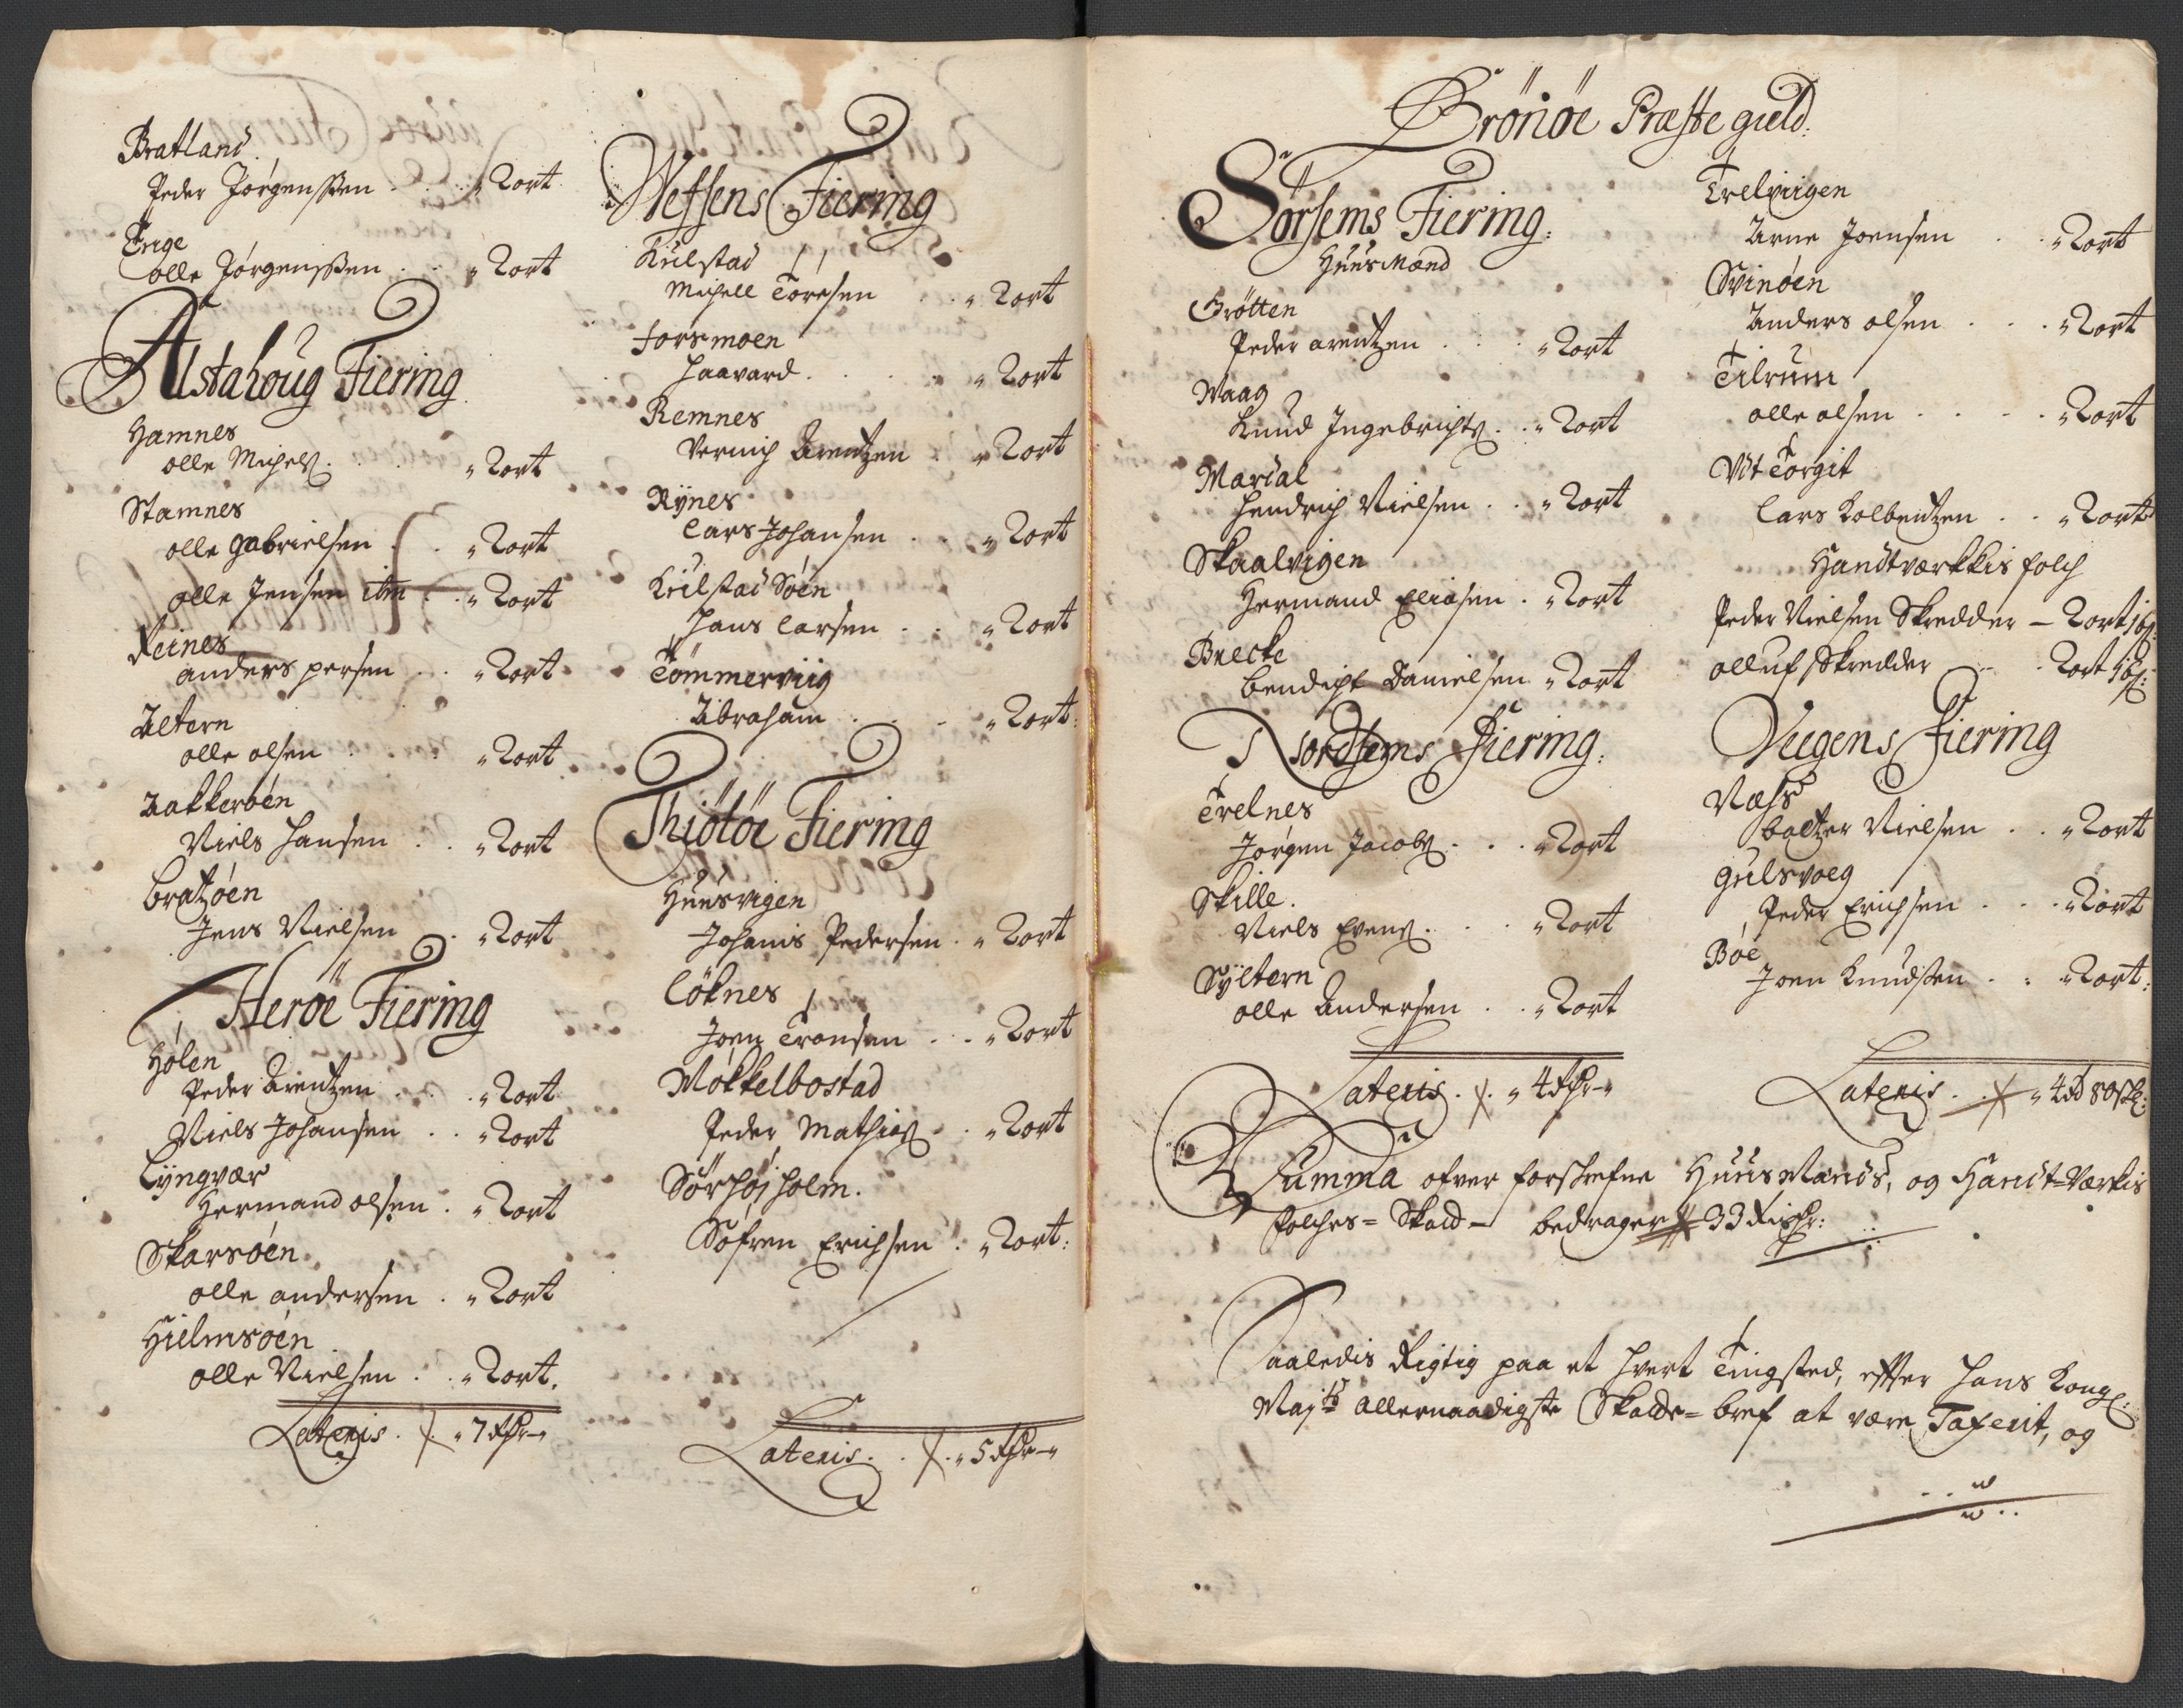 Bratland
Peder Jørgenssen . . . " 2 ort
Trige
olle Jörgenssen . . " 2 ort
Alstahoug Fiering
Hamnes
olle Michels. . . . " 2 ort
Stamnes
olle gabrielsen . . " 2 ort
olle Jensen ibm . . " 2 ort
Reines
anders persen . . " 2 ort
Altern
olle olsen . . . " 2 ort
Aakkerøen
Niels Hansen . . " 2 ort
bratzöen
Jens Nielsen . " 2 ort
Heröe Fiering
Hölen
Peder Arentzen . . . " 2 ort
Niels Johansen . . " 2 ort
Lÿngvær
Hermand olsen . " 2 ort
Skarsöen
olle andersen . " 2 ort
Hielmsöen
olle Nielsen . . " 2 ort.
Lateris . " 7 Rdr - "
Wefsens Fiering
Kulstad
Michell Töresen . . " 2 ort
forsmoen
Haavard . . . . " 2 ort
Remnes
Vernich Arentzen . " 2 ort
Rÿnes
Lars Johansen . . " 2 ort
Kulstad Söen
Hans Larsen . . " 2 ort
Tömmerviig
Abraham . . . " 2 ort
Thiötöe Fiering
Huusvigen
Johanis Pedersen . " 2 ort
Löknes
Joen Tronsen . . " 2 ort
Mökkelbostad
Peder Mathias . . " 2 ort
Sörhöj holm.
Söfren Erichsen . " 2 ort:
Lateris . . " 5 Rdr - "
Brönöe Præste gield.
Sörsems Fiering.
Huusmænd
Grötten
Peder arentzen . . . " 2 ort
Waag
Knud Ingebrichts. . " 2 ort
Mardal
Hendrich Nielsen . . " 2 ort
Skaalvigen
Hermand Eliasen . " 2 ort
Brecke
bendicht Danielsen " 2 ort
Nordsems Fiering.
Trelnes
Jörgen Jacobs. . . " 2 ort
Skille.
Niels Evens. . . . " 2 ort
Sÿltern
olle Andersen . . " 2 ort
Lateris . " 4 Rdr - "
Trelviigen
Arne Joensen . . " 2 ort
Svinöen
Anders olsen . . . " 2 ort
Tilrum
olle olsen . . . . " 2 ort
Vit Torgit
Lars Kolbentzen . . " 2 ort
Handtværkkis folch
Peder Nielsen Skredder - 2 ort 16 s:
olluf Skredder . . . 2 ort 16 s:
Veegens Fiering
Næhs
baltzer Nielsen . . " 2 ort
gulsvoeg
Peder Erichsen . . . " 2 ort
Böe
Joen Knudsen . . " 2 ort:
Lateris . " 4 Rd 80 sk:
Summa ofver forschrefne Huus Mænds, og Handt=Værkis
folches = Skatt - bedrager 33 Rixdr:
Saaledis Rigtig paa et hvert Tingsted, efter Hans Kongl:
Majts allernaadigste Skatte = bref at være Taxerit, og